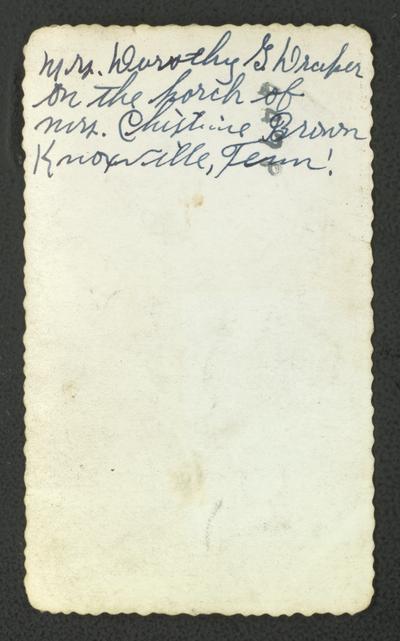 Mrs. Dorothy G Draper
on the porch of
mrs. Chistine Brown
Knoxville, Tenn!